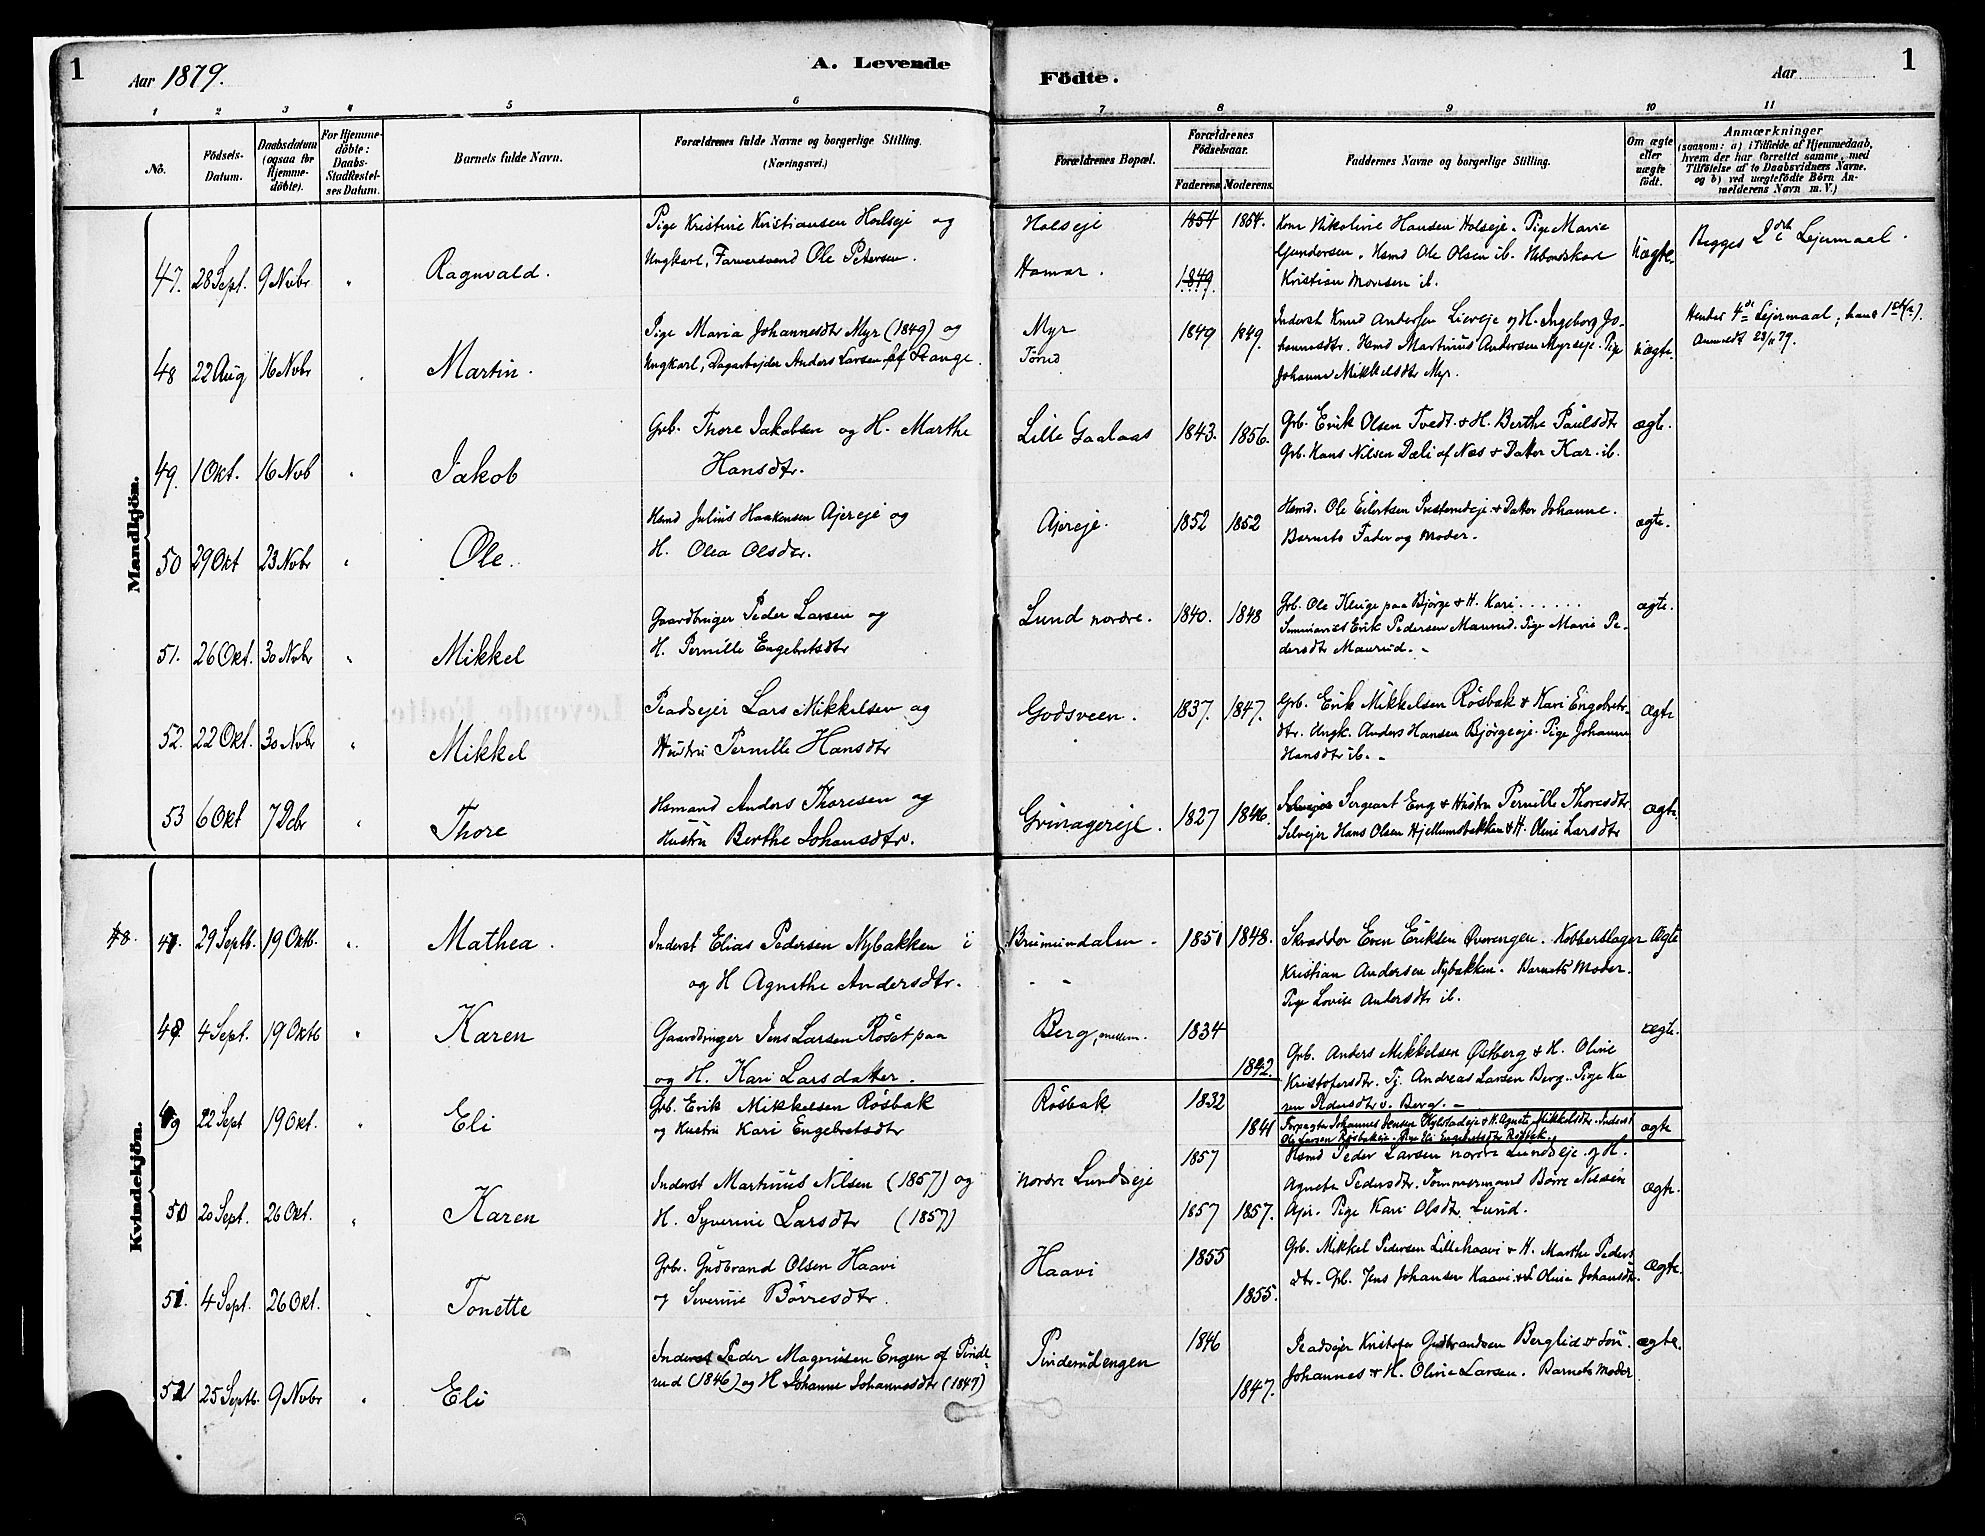 1
Aar 1879.
A. Levende
Födte.
Aar
1
1 2 3 4 5 6 7 8 9 10 11
No.
Födsels-
Datum.
Daabsdatum
(ogsaa for
Hjemme-
döbte).
For Hjemme-
döbte:
Daabs-
Stadfæstel-
ses Datum.
Barnets fulde Navn.
Forældrenes fulde Navne og borgerlige Stilling.
(Næringsvei.)
Forældrenes Bopæl.
Forældrenes
Födselsaar.
Faderens. Moderens.
Faddernes Navne og borgerlige Stilling.
Om ægte
eller
uægte
födt.
Anmærkninger
(saasom: a) i Tilfælde af Hjemmedaab,
hvem der har forrettet samme, med
Tilföielse af to Daabsvidners Navne,
og b) ved uægtefödte Börn An-
melderens Navn m. V.)
Mandkjön.
47. 28 Sept. 9 Nvbr " Ragnvald.
Pige Kristine Kristiansen Holseje og
Ungkarl, Farversvend Ole Petersen.
Holseje
Hamar.
1854 1854.
1849.
Kone Nikoline Hansen Holseje. Pige Marie
Gundersen. Hsmd Ole Olsen ib.
Kristian Monsen ib.
Uægte.
Begges 2det Lejermaal.
48 22 Aug 16 Nvbr " Martin.
Pige Maria Johannesdtr Myr (1849) og
Ungkarl, Dagarbejder Anders Larsen af Stange.
Myr
1849 1849.
Inderst Knud Andersen Lieveje og H. Ingeborg Jo-
hannesdtr. Hsmd Martinus Andersen Myrseje. Pige
Johanne Mikkelsdtr Myr.
Uægte.
Hendes 4de Lejermaal, hans 1ste
Anmeldt 23/11 79.
49. 1 Okt. 16 Nvb " Jakob
Grb. Thore Jakobsen og H. Marthe
Hansdtr.
Lille Gaalaas 1843. 1856.
Grb. Erik Olsen Tvedt. & H. Berthe Paulsdtr
Grb. Hans Nilsen Dæli af Næs & Datter Kar. ib.
ægte.
50 29 Okt 23 Nvbr " Ole.
Hsmd Julius Haakensen Ajereje og
H. Olea Olsdtr.
Ajereje. 1852 1852
Hsmd. Ole Eilertsen Præsterudeje & Datter Johanne.
Barnets Fader og Moder.
ægte.
51. 26 Okt. 30 Nvbr " Mikkel
Gaardbruger Peder Larsen og
H. Pernille Engebretsdtr
Lund nordre. 1840. 1848
Grb. Ole Kluge paa Bjørge & H. Kari . . . . . .
Seminarist Erik Pedersen Maurud. Pige Marie Pe-
dersdtr Maurud. -
ægte.
52. 22 Okt. 30 Nvbr " Mikkel
Pladsejer Lars Mikkelsen og
Hustru Pernille Hansdtr
Godsveen. 1837. 1847.
Grb. Erik Mikkelsen Røsbak & Kari Engebrets-
dtr. Ungk. Anders Hansen Bjørgeeje. Pige Johanne
Hansdtr ib. -
Ægte
53 6 Okt 7 Dcbr " Thore
Hsmand Anders Thoresen og
Hustru Berthe Johansdtr.
Grinagereje. 1827 1846.
Sergeant Eng & Hustru Pernille Thoresdtr
Selvejer Hans Olsen Hjellumsbakken & H. Oline Larsdtr
Ægte.
Kvindekjön.
48. 47 29 Septb. 19 Oktb. " Mathea.
Inderst Elias Pedersen Nybakken i
og H Agnethe Andersdtr.
Brumunddalen. 1851 1848.
Skrædder Even Eriksen Øverengen. Kobberslager
Kristian Andersen Nybakken. Barnets Moder.
Pige Lovise Andersdtr ib.
Ægte
48 4 Sept. 19 Oktb " Karen
Gaardbruger Jens Larsen Röset paa
og H. Kari Larsdatter.
Berg, mellem. 1834
1842.
Grb. Anders Mikkelsen Østberg & H. Oline
Kristofersdtr. Tj. Andreas Larsen Berg. Pige Ka
ren Pedersdtr v. Berg. -
ægte.
49 22 Sept 19 Okt. " Eli
Grb. Erik Mikkelsen Røsbak
og Hustru Kari Engebretsdtr
Røsbak 1832
1841
Forpagter Johannes Jensen & H. Agnete Mikkelsdtr. Inderst
Ole Larsen Røsbakeje. Pige Eli Engebretsdtr Røsbak.
ægte
50 20 Sept. 26 Okt. " Karen
Inderst Martinus Nilsen (1857) og
H. Syverine Larsdtr (1857)
nordre Lundseje 1857
1857 1857.
Hsmd Peder Larsen nordre Lundseje og H.
Agnete Pedersdtr. Tømmermand Børre Nilsen
Ajer. Pige Kari Olsdtr. Lund.
Ægte.
51. 4 Sept. 26 Okt. " Tonette
Grbr. Gudbrand Olsen Haavi
og Severine Börresdtr.
Haavi 1855
1855.
Grb. Mikkel Pedersen Lillehaavi & H. Marthe Peders
dtr. Grb. Jens Johansen Haavi & S Olina Johansdtr.
Ægte.
52 25 Septb. 9 Nvbr " Eli
Inderst Peder Magnusen Engen af Pinde
rud (1846) og H Johanne Johannesdtr (1847)
Pinderudengen 1846
1847.
Pladsejer Kristofer Gudbrandsen Berglid & Sön
Johannes & H. Oline Larsen. Barnets Moder
ægte.